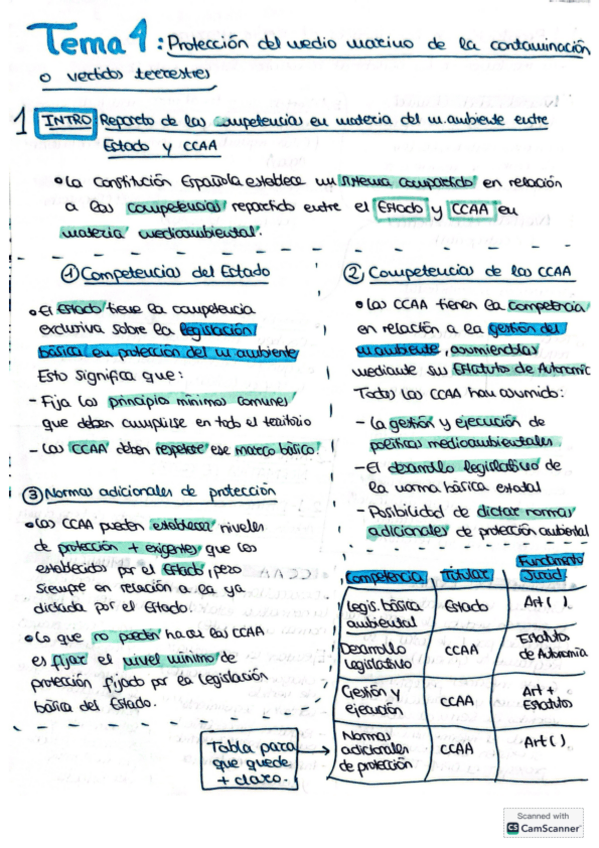 Tema 1: Protección del medio marino de la contaminación
o vertidos terrestres
1 INTRO Reparto de las competencias en materia del m.ambiente entre
Estado y CCAA
• La Constitución Española establece un sistema compartido en relación
a las competencias repartido entre el Estado y CCAA en
materia medioambiental.
① Competencias del Estado
• El Estado tiene la competencia
exclusiva sobre la legislación
básica en protección del m.ambiente
Esto significa que:
- Fija los principios mínimos comunes
que deben cumplirse en todo el territorio
- Las CCAA deben respetar ese marco básico.
② Competencias de las CCAA
• Las CCAA tienen la competencia
en relación a la gestión del
m.ambiente, asumiéndolas
mediante sus Estatutos de Autonomía
Todas las CCAA han asumido:
- La gestión y ejecución de
políticas medioambientales
- El desarrollo legislativo de
la norma básica estatal
- Posibilidad de dictar normas
adicionales de protección ambiental
③ Normas adicionales de protección
• Las CCAA pueden establecer niveles
de protección + exigentes que los
establecidos por el Estado, pero
siempre en relación a la ya
dictada por el Estado.
• Lo que no pueden hacer las CCAA
es fijar el nivel mínimo de
protección fijado por la legislación
básica del Estado.
Tabla para
que quede
+ claro.
Competencia Titular Fundamento Juríd.
Legis. básica ambiental Estado Art ( ).
Desarrollo legislativo CCAA Estatuto de Autonomía
Gestión y ejecución CCAA Art + Estatutos
Normas adicionales de protección CCAA Art ( ).
Scanned with
CS CamScanner